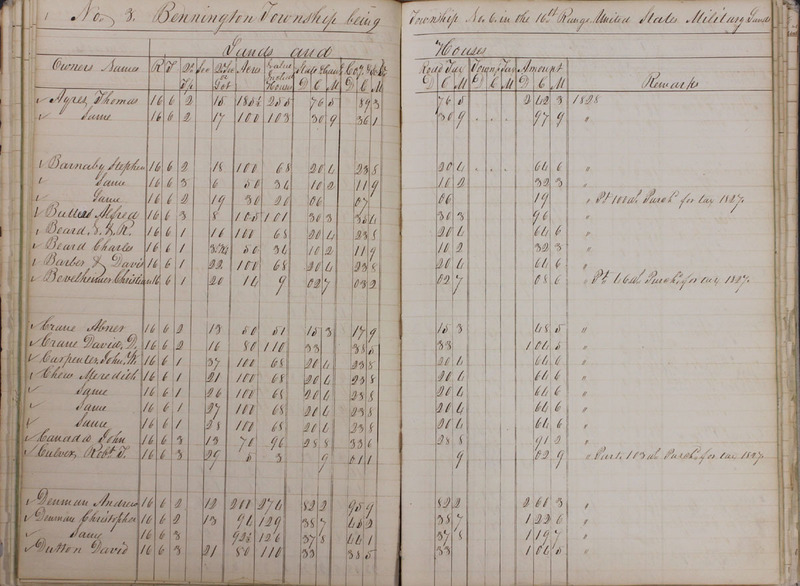 No. 3. Bennington Township being Township No. 6. in the 16th Range United States Military Lands
Lands and Houses
Owners Names R T Acres State Road Tax Town Tax Amount Remarks
D C M D C M D C M D C M D C M
Ayres, Thomas 16 6 2 15 255 76 5 89 3 76 5 2 42 3 1828
Same 16 6 2 17 100 103 30 9 36 1 30 9 97 9 "
Barnaby Stephen 16 6 2 18 100 68 20 4 23 8 20 4 64 6 "
Same 16 6 3 6 50 34 10 2 11 9 10 2 32 3 "
Same 16 6 2 19 30 20 06 07 06 19 " for tax 1827.
Alfred 16 6 3 8 105 101 30 3 35 4 30 3 96 "
Beard 16 6 1 16 100 68 20 4 23 8 20 4 64 6 "
Beard Charles 16 6 1 50 34 10 2 11 9 10 2 32 3 "
Barber & Davis 16 6 1 22 100 68 20 4 23 8 20 4 64 6 "
Christian 16 6 1 20 14 9 02 7 03 2 02 7 08 6 for tax 1827.
Crane Abner 16 6 2 13 50 51 15 3 17 9 15 3 48 5 "
Crane David, D. 16 6 2 16 80 110 33 38 5 33 1 04 5 "
Carpenter, John W. 16 6 1 37 100 68 20 4 23 8 20 4 64 6 "
Chew Meredith 16 6 1 21 100 68 20 4 23 8 20 4 64 6 "
Same 16 6 1 26 100 68 20 4 23 8 20 4 64 6 "
Same 16 6 1 27 100 68 20 4 23 8 20 4 64 6 "
Same 16 6 1 28 100 68 20 4 23 8 20 4 64 6 "
Canada John 16 6 3 13 70 96 28 8 33 6 28 8 91 2 "
Culver, Robt. T. 16 6 3 29 3 9 01 1 9 02 9 " for tax 1827.
Denman Andrew 16 6 2 12 200 274 82 2 95 9 82 2 2 60 3 "
Denman Christopher 16 6 2 13 94 129 38 7 45 2 38 7 1 22 6 "
Same 16 6 3 126 37 8 44 1 37 8 1 19 7 "
Dutton David 16 6 3 21 80 110 33 38 5 33 1 04 5 "